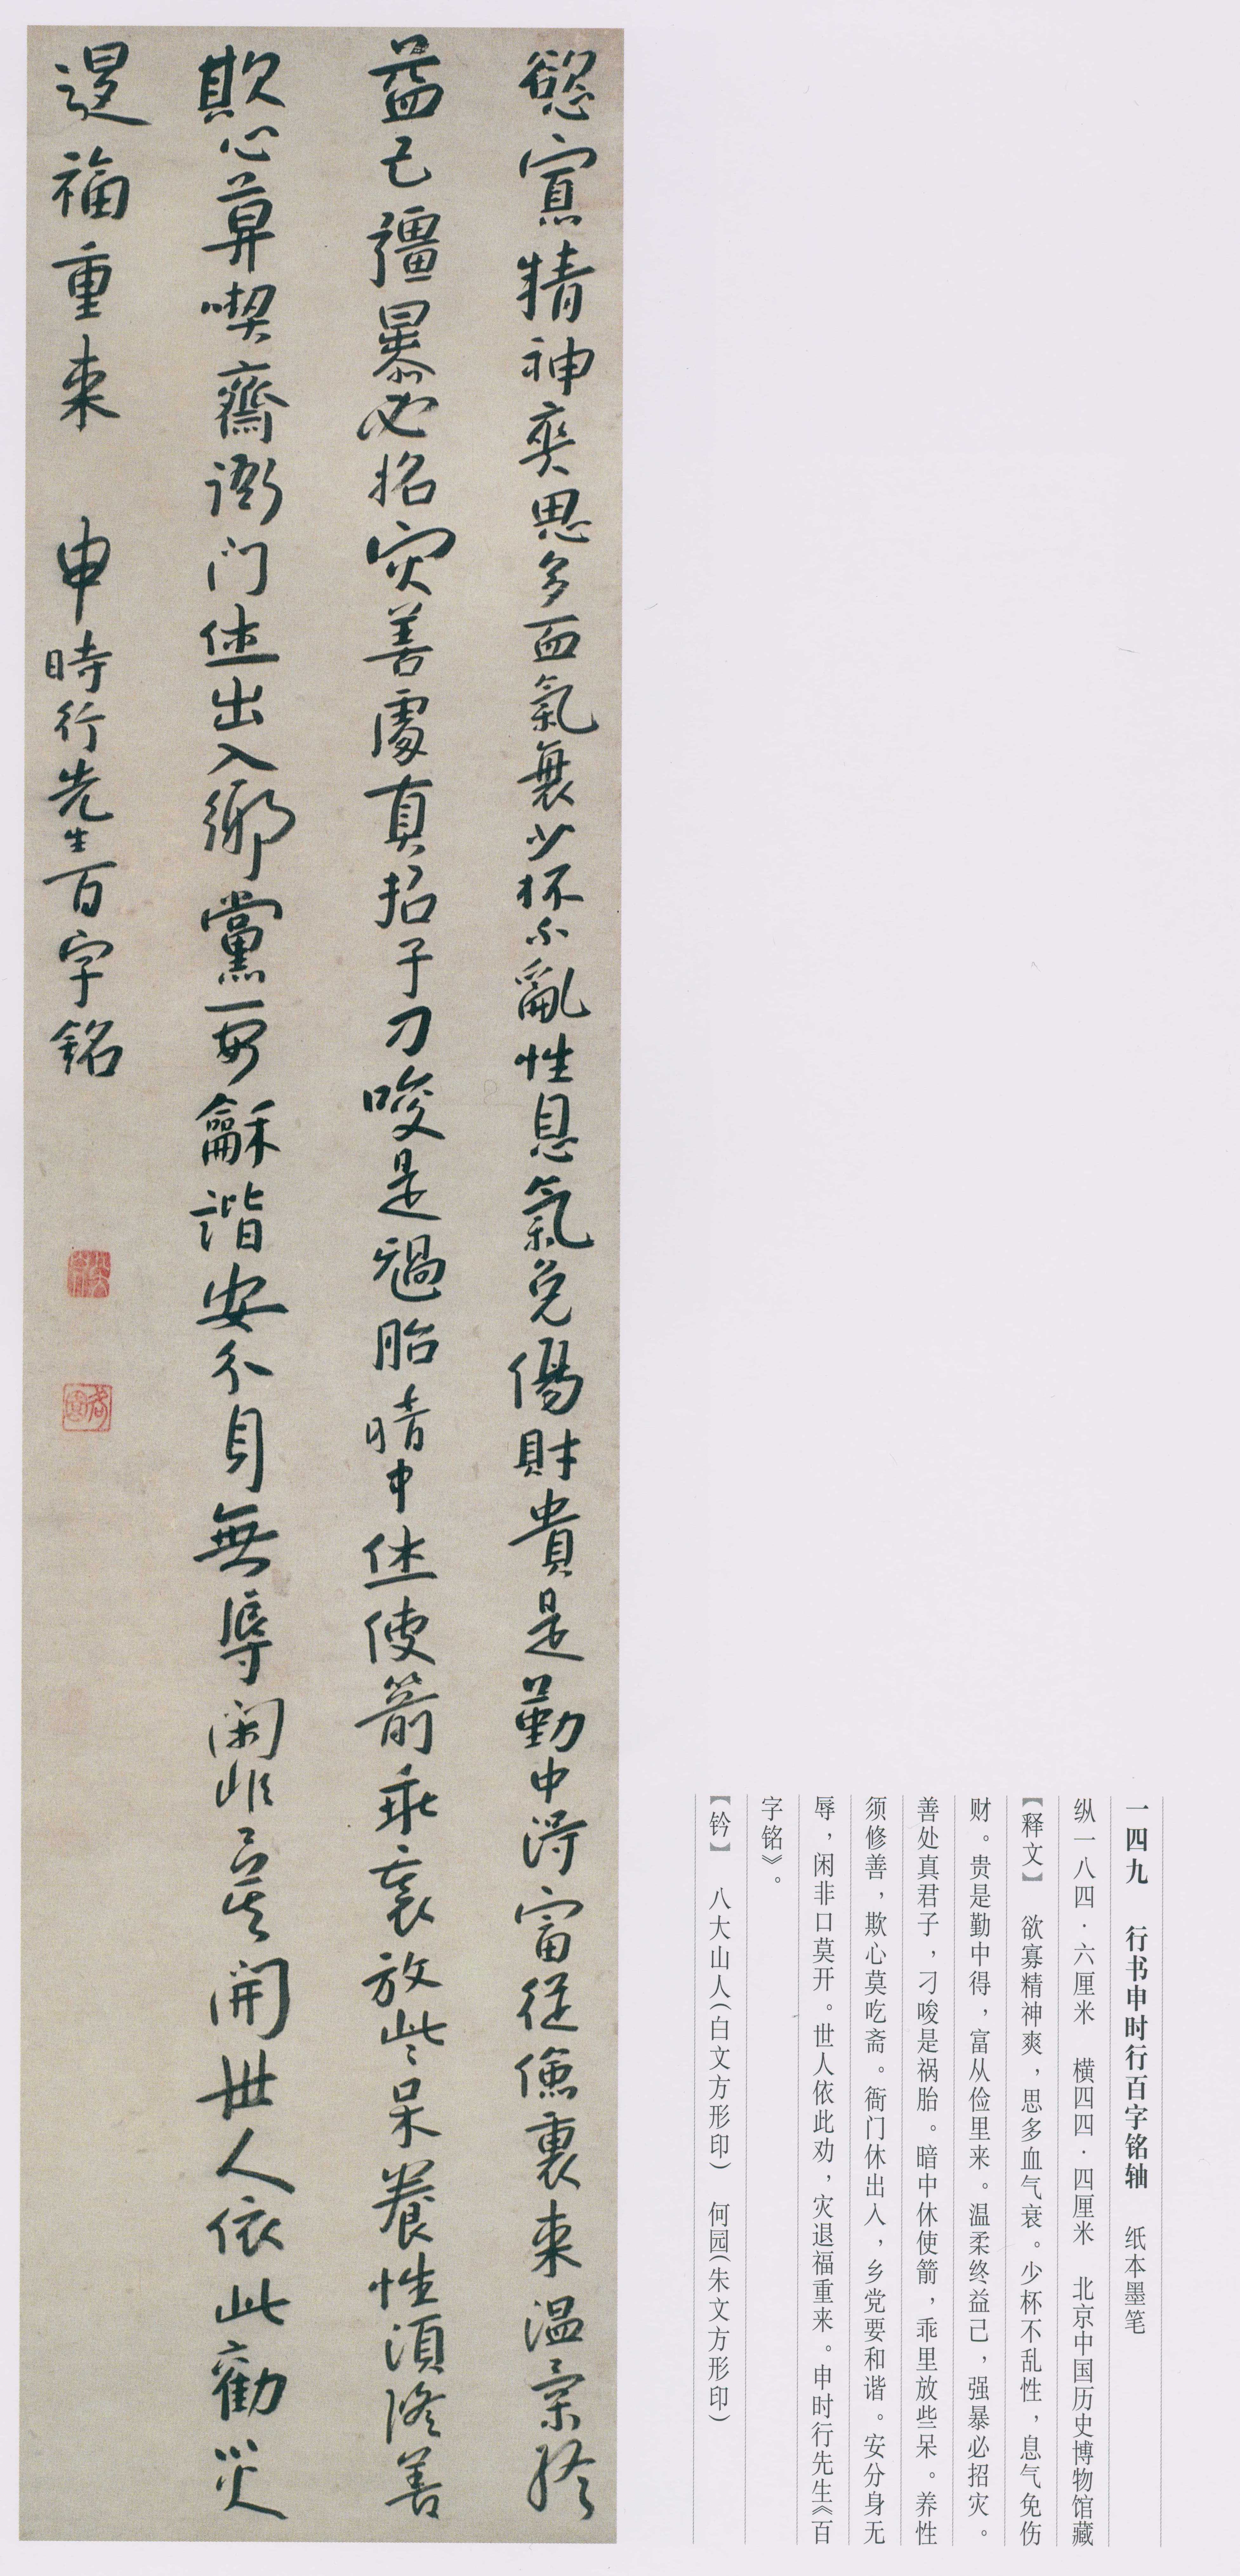 慾寡精神爽思多血氣衰少杯不亂性息氣免傷財貴是勤中得富從儉裏来温柔終
益己彊暴必招灾善處真君子刁唆是禍胎暗中休使箭乖裏放些呆養性須修善
欺心莫喫齋衙门休出入鄉黨要龢諧安分身無辱闲非口莫開世人依此勸災
退福重来 申時行先生百字銘
一四九 行书申时行百字铭轴 纸本墨笔
纵一八四·六厘米 横四四·四厘米 北京中国历史博物馆藏
【释文】 欲寡精神爽，思多血气衰。少杯不乱性，息气免伤
财。贵是勤中得，富从俭里来。温柔终益己，强暴必招灾。
善处真君子，刁唆是祸胎。暗中休使箭，乖里放些呆。养性
须修善，欺心莫吃斋。衙门休出入，乡党要和谐。安分身无
辱，闲非口莫开。世人依此劝，灾退福重来。申时行先生《百
字铭》。
【钤】 八大山人（白文方形印） 何园（朱文方形印）